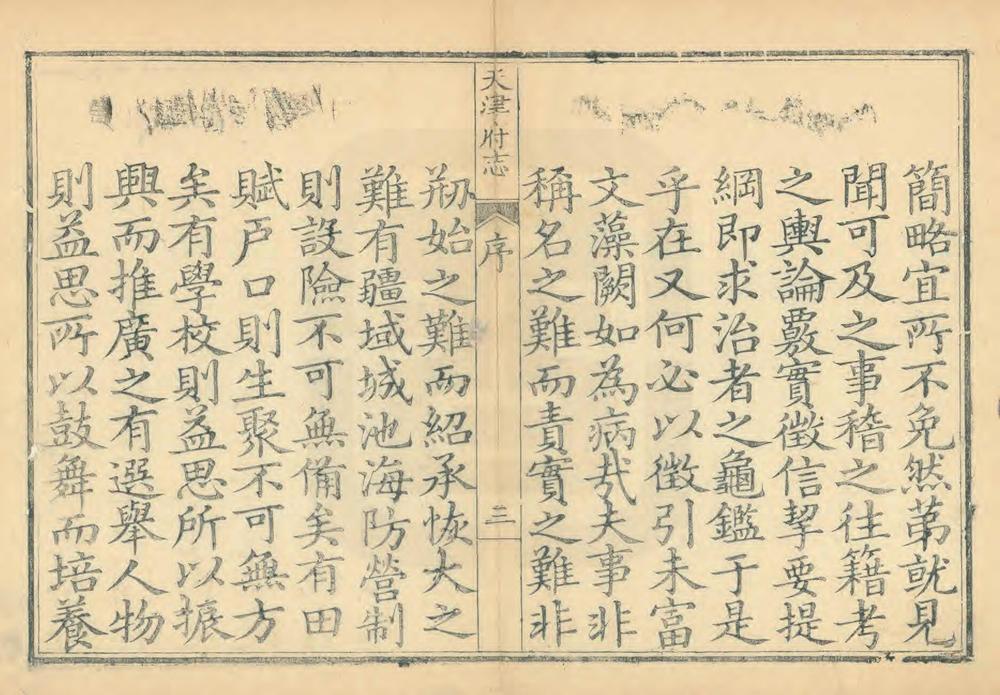 簡略宜所不免然苐就見
聞可及之事稽之往籍考
之輿論覈實徵信挈要提
綱即求治者之龜鑑于是
乎在又何必以徵引未富
文藻闕如為病㢤夫事非
稱名之難而責實之難非
天津府志
序
三
刱始之難而紹承恢大之
難有疆域城池海防營制
則設險不可無備矣有田
賦戶口則生聚不可無方
矣有學校則益思所以振
興而推廣之有選舉人物
則益思所以鼓舞而培養